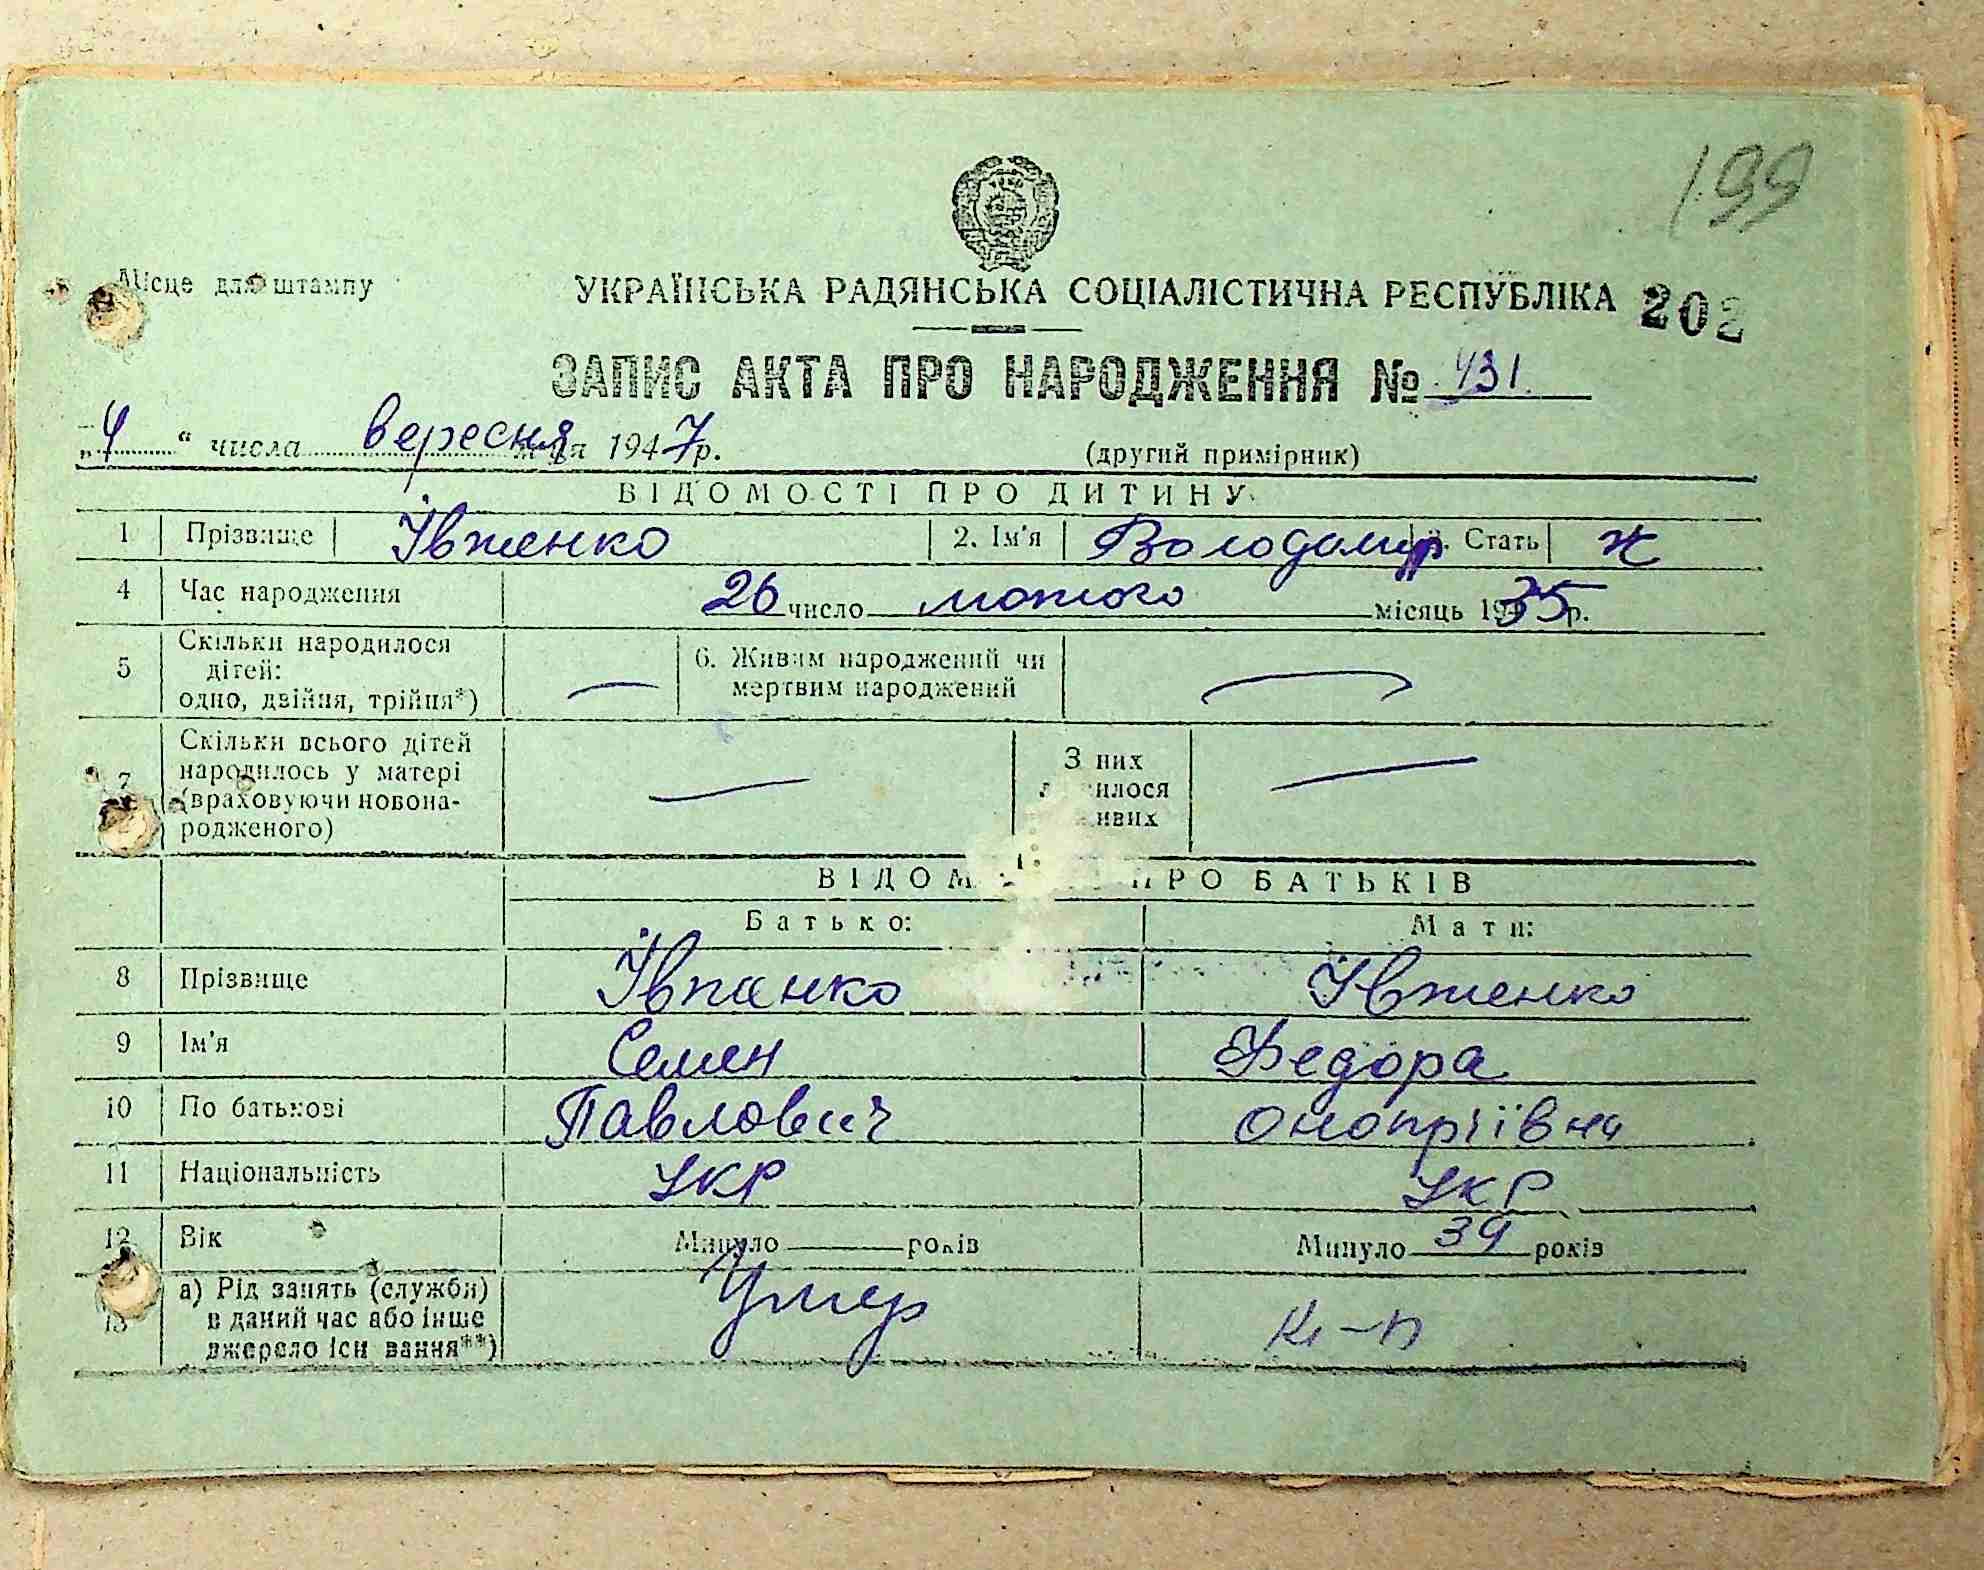 199
Місце для штампу
УКРАЇНСЬКА РАДЯНСЬКА СОЦІАЛІСТИЧНА РЕСПУБЛІКА 202
ЗАПИС АКТА ПРО НАРОДЖЕННЯ № 431
„4“ числа вересня м-ця 1947 р. (другий примірник)
ВІДОМОСТІ ПРО ДИТИНУ
1 Прізвище Івженко 2. Ім'я Володимир 3. Стать ж
4 Час народження 26 число лютого місяць 1935 р.
5 Скільки народилося дітей: одно, двійня, трійня*) — 6. Живим народжений чи мертвим народжений —
7 Скільки всього дітей народилось у матері (враховуючи новонародженого) — З них —
ВІДОМ ПРО БАТЬКІВ
Батько: Мати:
8 Прізвище Івпанко Івженко
9 Ім'я Семен Федора
10 По батькові Павлович Онопріївна
11 Національність укр укр
12 Вік Минуло років Минуло 39 років
13 а) Рід занять (служби) в даний час або інше джерело існування**) Умер к-п